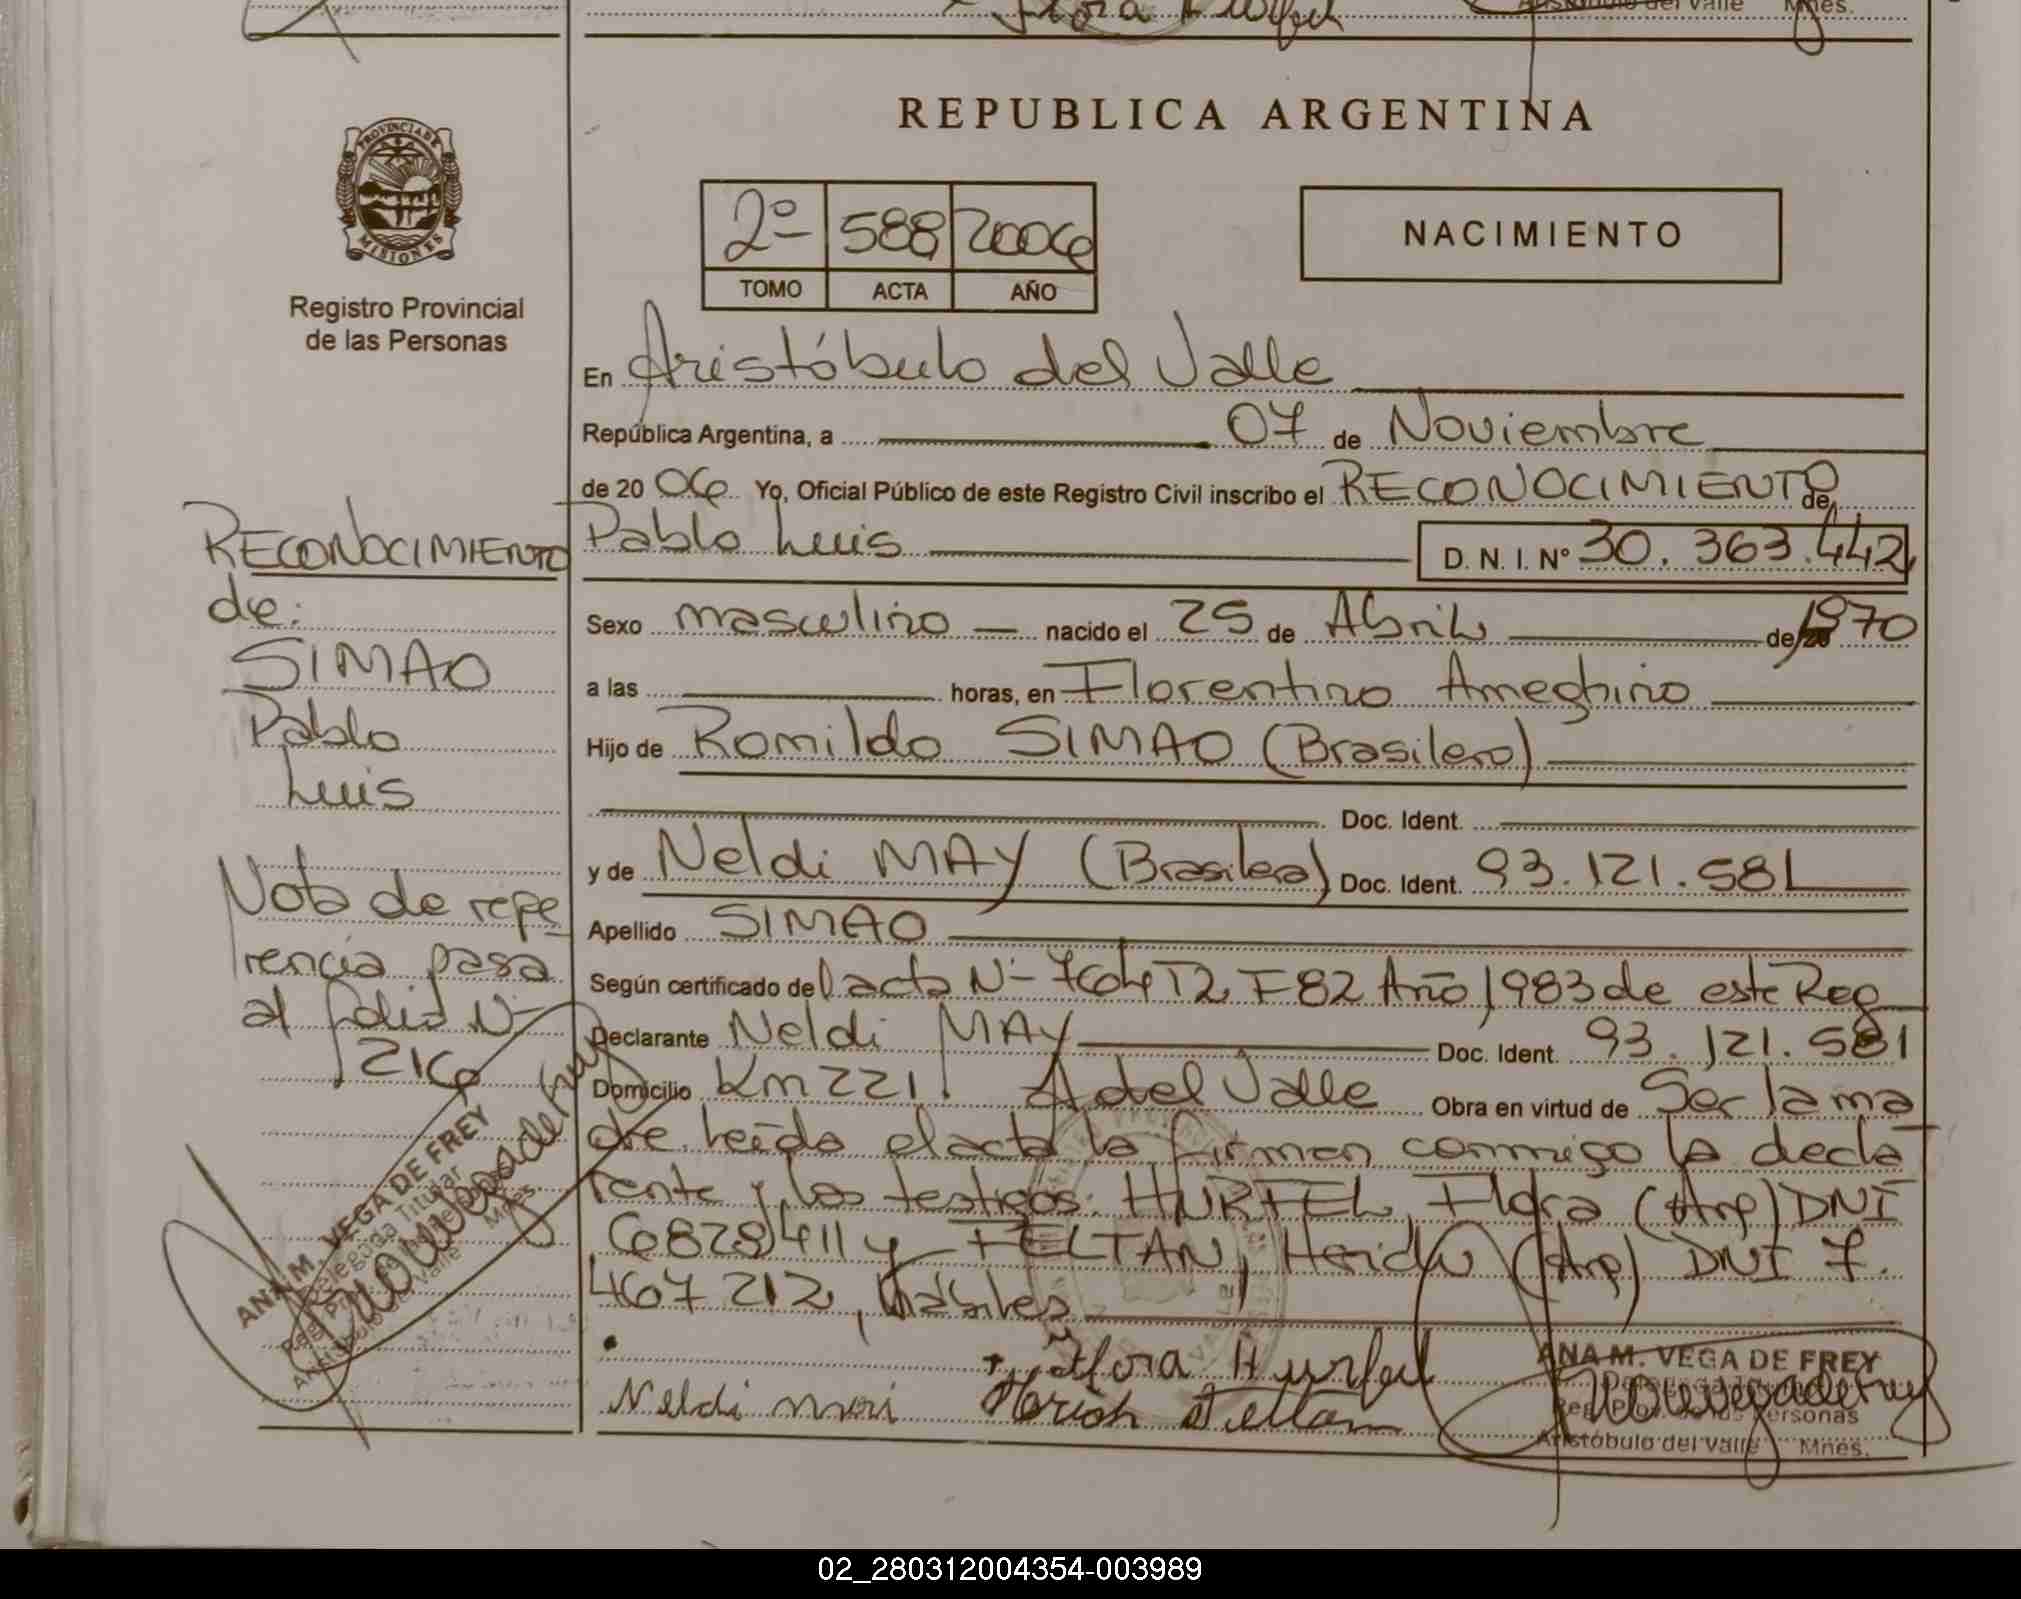 REPUBLICA ARGENTINA
PROVINCIA DE MISIONES
Registro Provincial
de las Personas
2º 588 2006
TOMO ACTA AÑO
NACIMIENTO
En Aristóbulo del Valle
República Argentina, a 07 de Noviembre
de 20 06 Yo, Oficial Público de este Registro Civil inscribo el RECONOCIMIENTO de
Pablo Luis D. N. I. Nº 30.363.442
Sexo masculino nacido el 25 de Abril de 1970
a las horas, en Florentino Ameghino
Hijo de Romildo SIMAO (Brasilero)
Doc. Ident.
y de Neldi MAY (Brasilera) Doc. Ident. 93.121.581
Apellido SIMAO
Según certificado del acta Nº 764 T2 F82 Año 1983 de este Reg
Declarante Neldi MAY Doc. Ident. 93.121.581
Domicilio Km 221. A del Valle Obra en virtud de Ser la ma
dre. Leída el acta la firman conmigo la decla
rante y los testigos: HURFEL, Flora (Arg) DNI
6828411 y FELTAN, (Arg) DNI 7.
467 212, hábiles
RECONOCIMIENTO
de:
SIMAO
Pablo
Luis
Nota de refe
rencia pasa
al folio Nº
216
ANA M. VEGA DE FREY
Delegada Titular
Aristóbulo del Valle Mnes.
Flora Hurfel
Neldi
ANA M. VEGA DE FREY
Reg. Prov. de las Personas
Aristóbulo del Valle Mnes.
02_280312004354-003989